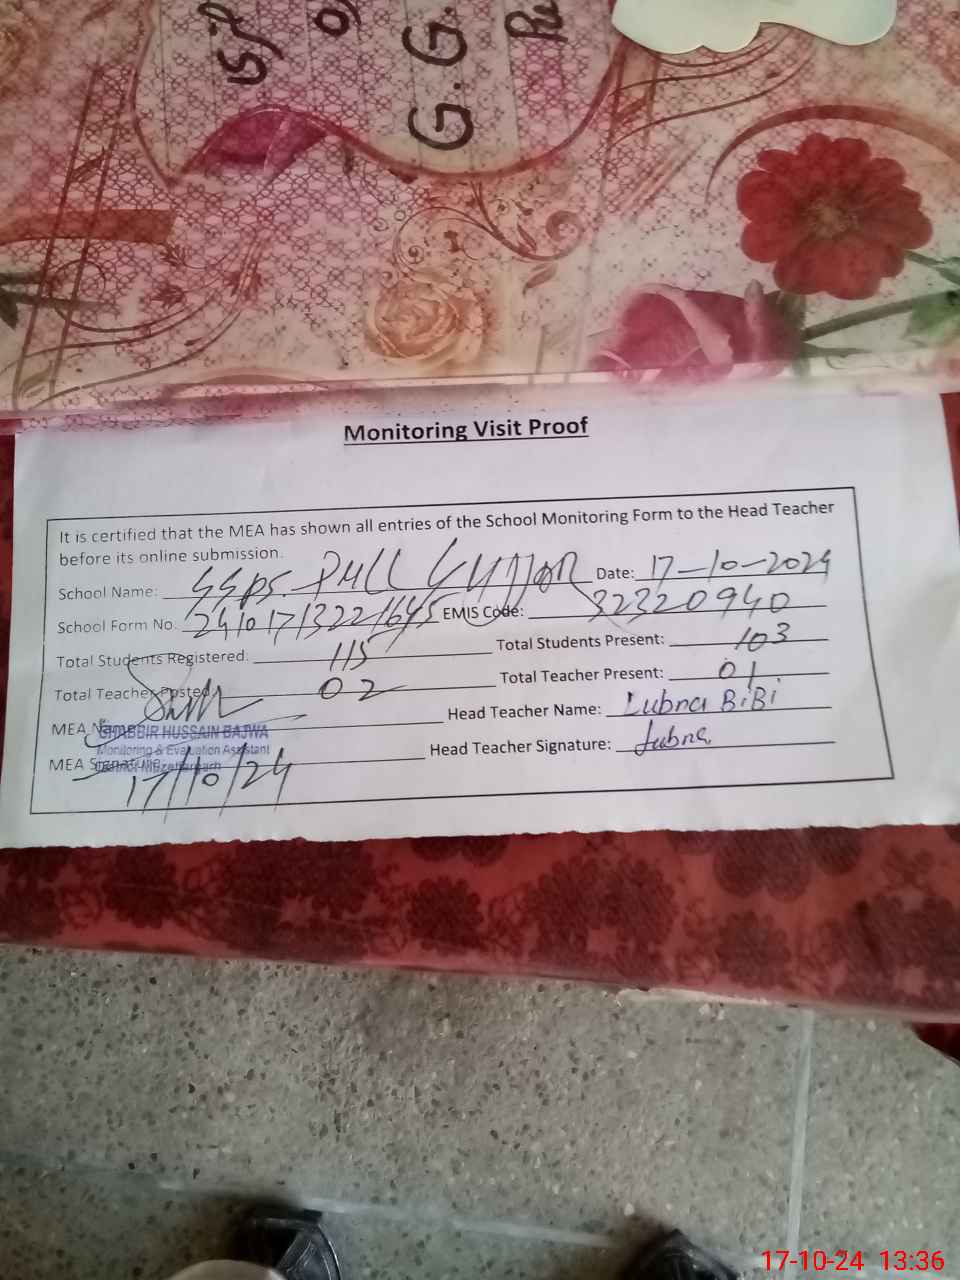 G.G.
Monitoring Visit Proof
It is certified that the MEA has shown all entries of the School Monitoring Form to the Head Teacher
before its online submission.
School Name: GGPS. PULL GUJJON Date: 17-10-2024
School Form No. 241017132216<br>45 EMIS Code: 32320940
Total Students Registered: 115 Total Students Present: 103
Total Teacher Posted: 02 Total Teacher Present: 01
MEA Head Teacher Name: Lubna BiBi
SHABBIR HUSSAIN BAJWA
Monitoring & Evaluation Assistant
MEA Signature Head Teacher Signature: Lubna
District Muzaffargarh
17/10/24
17-10-24 13:36